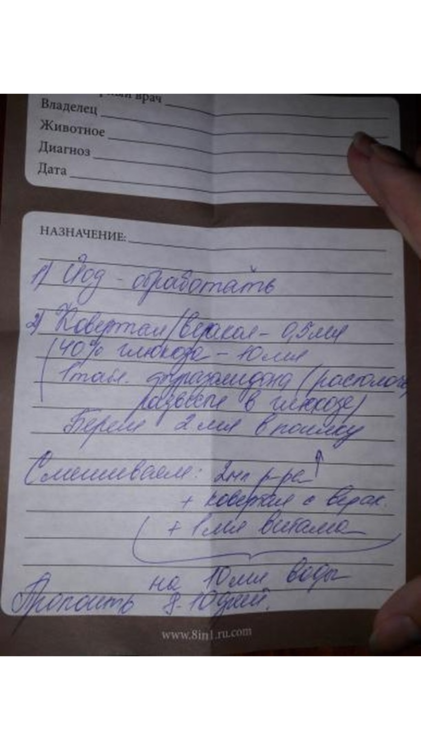 врач
Владелец
Животное
Диагноз
Дата
НАЗНАЧЕНИЕ:
1) Йод - обработать
2) Ковертал/ - 0,5мл
40% глюкоза - 10мл
1 табл. (располочь,
развести в глюкозе)
Берем 2мл в поилку
Смешиваем: 2мл р-ра
+ ковертал с
+ 1мл витама
на 10мл воды
Пропоить 8-10дней.
www.8in1.ru.com